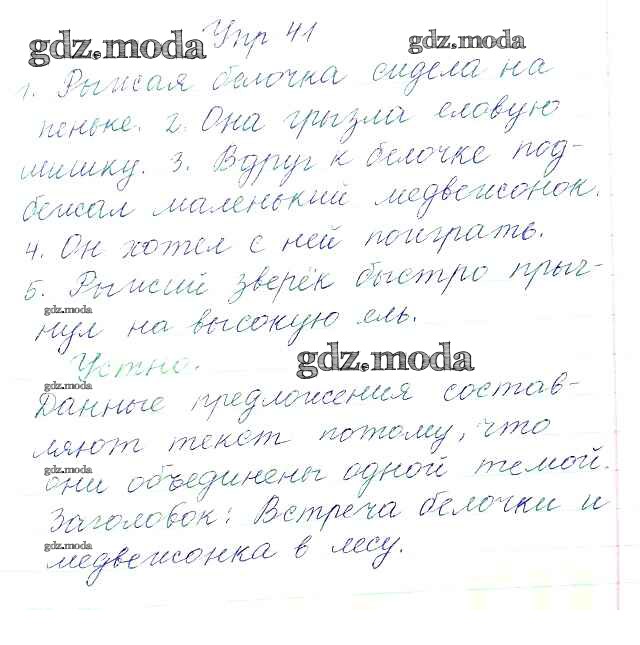 Упр 41
gdz.moda gdz.moda
1. Рыжая белочка сидела на
пеньке. 2. Она грызла еловую
шишку. 3. Вдруг к белочке под-
бежал маленький медвежонок.
4. Он хотел с ней поиграть.
5. Рыжий зверёк быстро прыг-
gdz.moda
нул на высокую ель.
Устно.
gdz.moda
gdz.moda
Данные предложения состав-
ляют текст потому, что
gdz.moda
они объединены одной темой.
Заголовок: Встреча белочки и
gdz.moda
медвежонка в лесу.